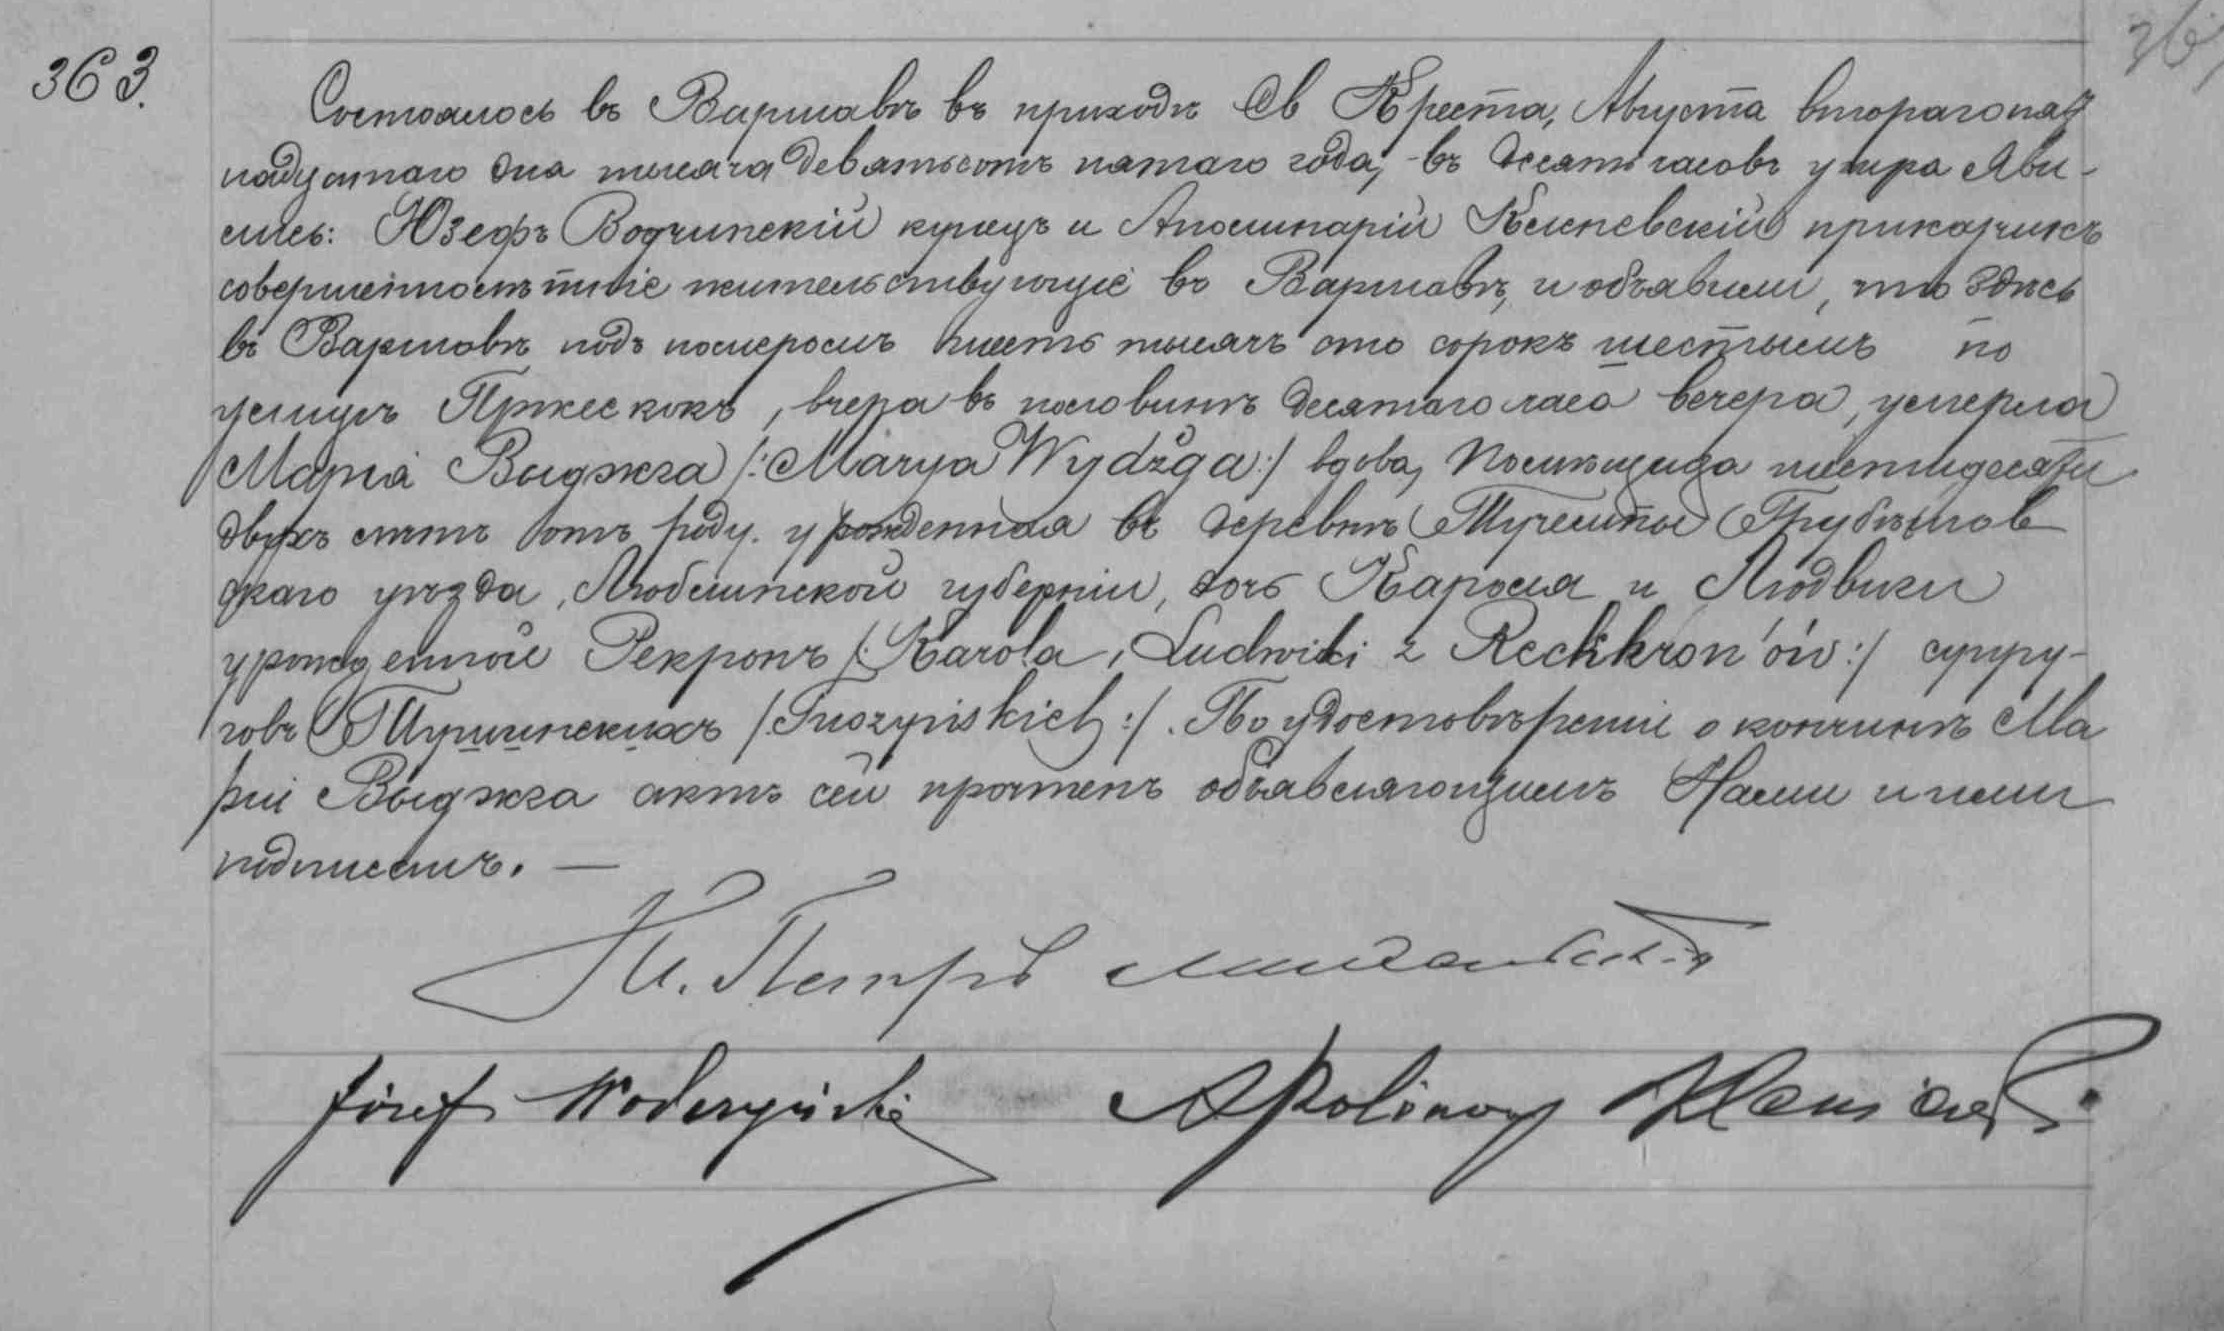 363.
Состоялось въ Варшавѣ въ приходѣ Св Креста, Августа второго пят
надцатаго дня тысяча девятьсотъ пятаго года, въ десять часовъ утра Яви-
лись: Юзефъ Водчинскій купецъ и Аполинарій прикащикъ
совершеннолѣтніе жительствующіе въ Варшавѣ, и объявили, что здѣсь
въ Варшавѣ подъ номеромъ тысячъ сто сорокъ шестымъ по
улицѣ , вчера въ половинѣ десятаго часа вечера, умерла
Марія Выджга /:Marya Wydżga:/ вдова, Помѣщица шестидесяти
двухъ лѣтъ отъ роду. урожденная въ деревнѣ Грубѣшов
скаго уѣзда, Люблинской губерніи, дочь Кароля и Людвики
урожденной Рекронъ /:Karola, Ludwiki z Reckkron'ów:/ супру-
говъ /:Tuczyńskich:/. По удостовѣреніи о кончинѣ Ма
ріи Выджга актъ сей прочтенъ объявляющимъ Нами и ими
подписанъ. —
Петръ
Józef Wodczyński Apolinary